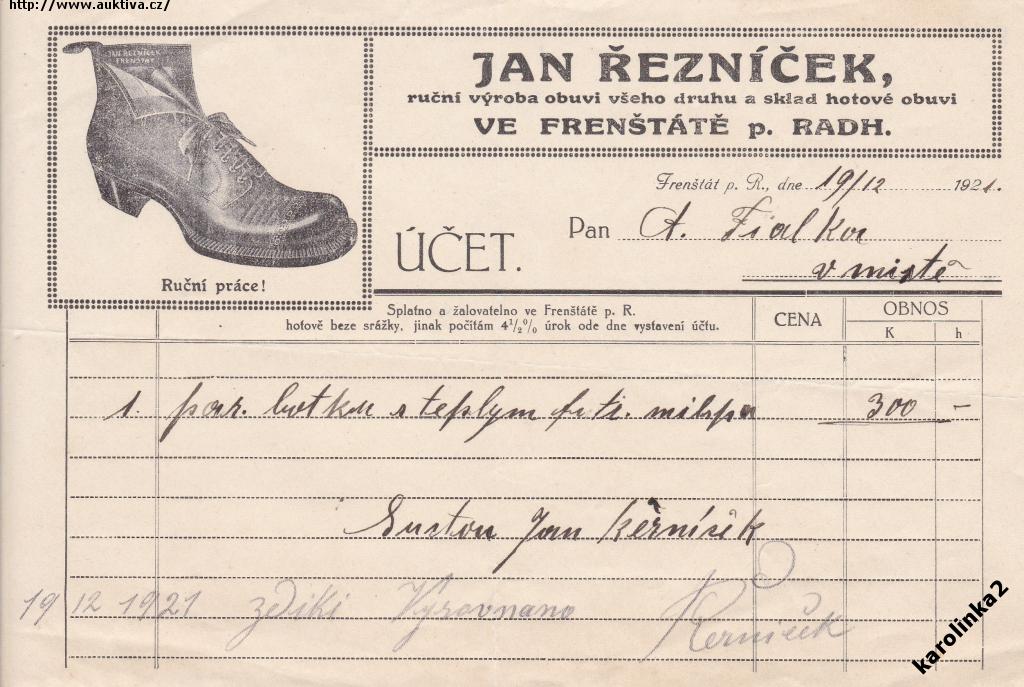 http://www.auktiva.cz/
JAN ŘEZNÍČEK
FRENŠTÁT
JAN ŘEZNÍČEK,
ruční výroba obuvi všeho druhu a sklad hotové obuvi
VE FRENŠTÁTĚ p. RADH.
Ruční práce!
Frenštát p. R., dne 19/12 1921.
ÚČET.
Pan A. Fialka
v místě
Splatno a žalovatelno ve Frenštátě p. R.
hotově beze srážky, jinak počítám 4½% úrok ode dne vystavení účtu.
CENA
OBNOS
K h
1. par. botku s teplym 300 –
Jan
19 12 1921 Vyrovnano
karolinka2